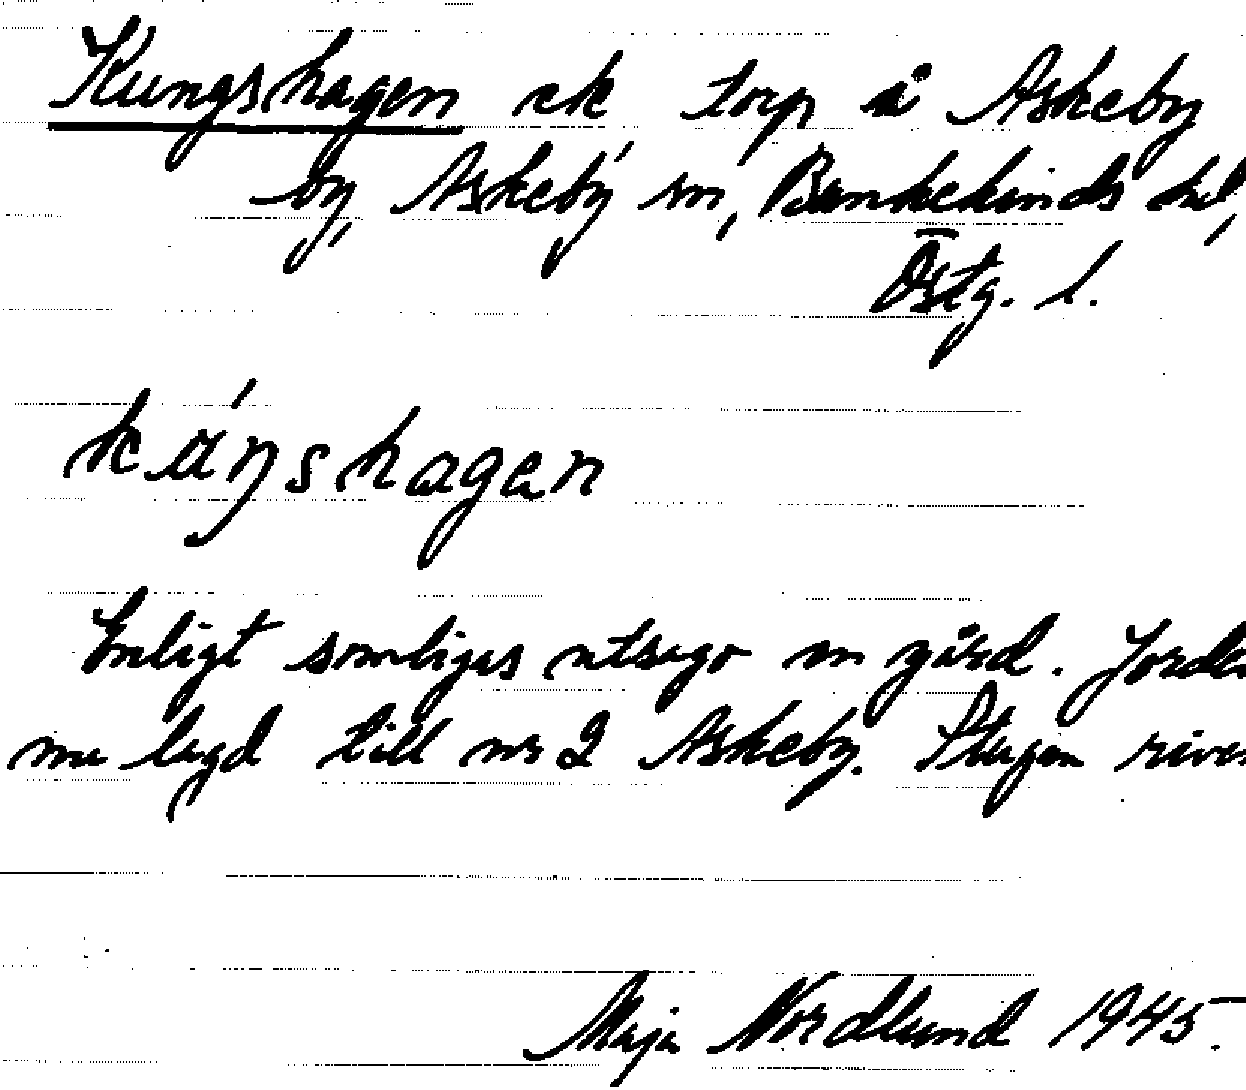 Kungshagen ek torp å Askeby
by, Askeby sn, Bankekinds hd,
Östg. l.
káŋshagen
Enligt somligas utsago en gård. Jorden
nu lagd till nr 2 Askeby. Stugan riven
Maja Nordlund 1945.